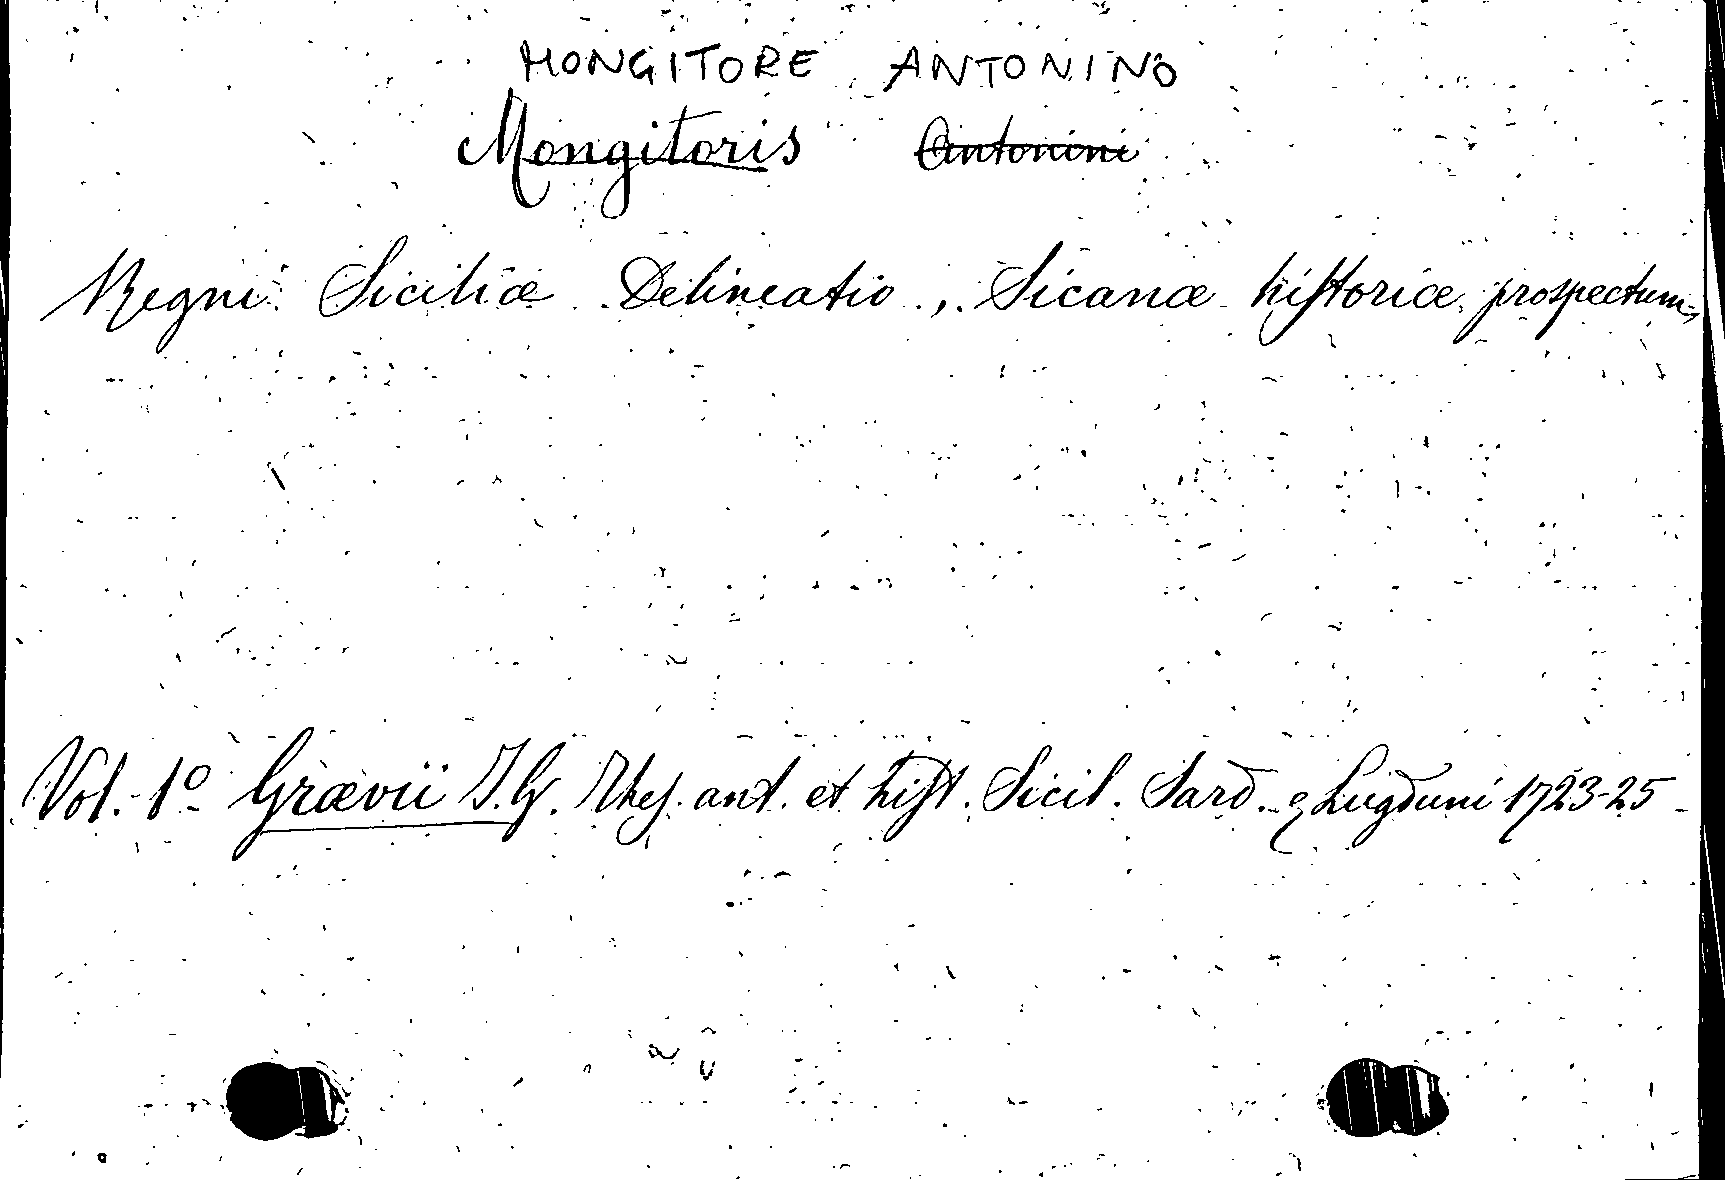 MONGITORE ANTONINO
Mongitoris Antonini
Regni Siciliæ Delineatio, Sicanæ historiæ prospectum,
Vol. 1º Grævii J. G. Thes. ant. et hist. Sicil. Sard. Lugduni 1723-25